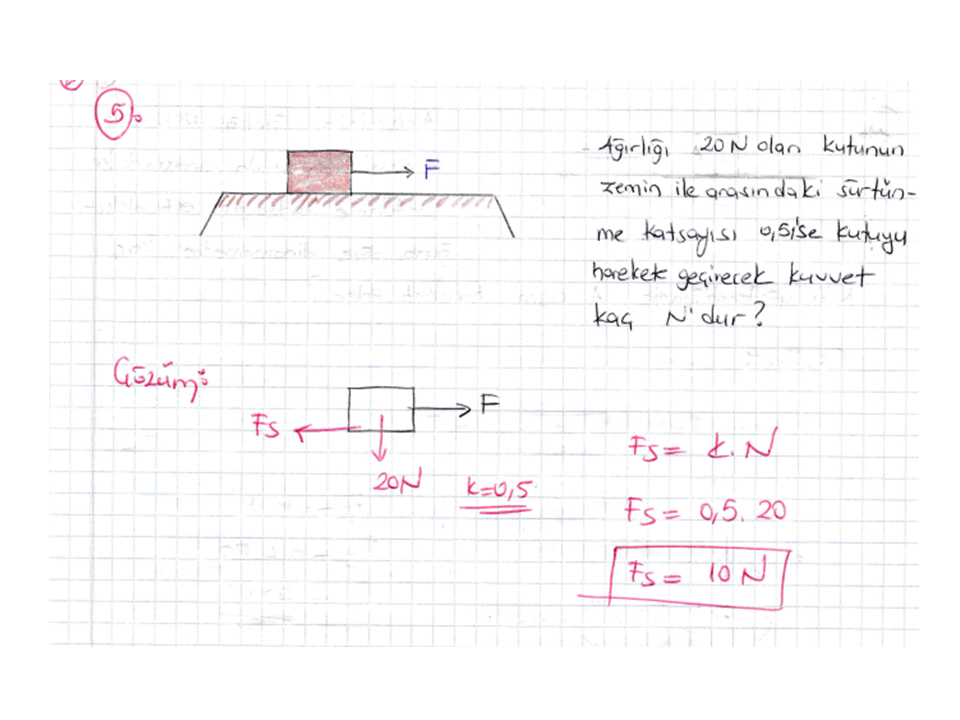 5.
F
Ağırlığı 20 N olan kutunun
zemin ile arasındaki sürtün-
me katsayısı 0,5 ise kutuyu
harekek geçirecek kuvvet
kaç N'dur?
Çözüm:
Fs
F
20N
k=0,5
Fs = k.N
Fs = 0,5. 20
Fs = 10 N